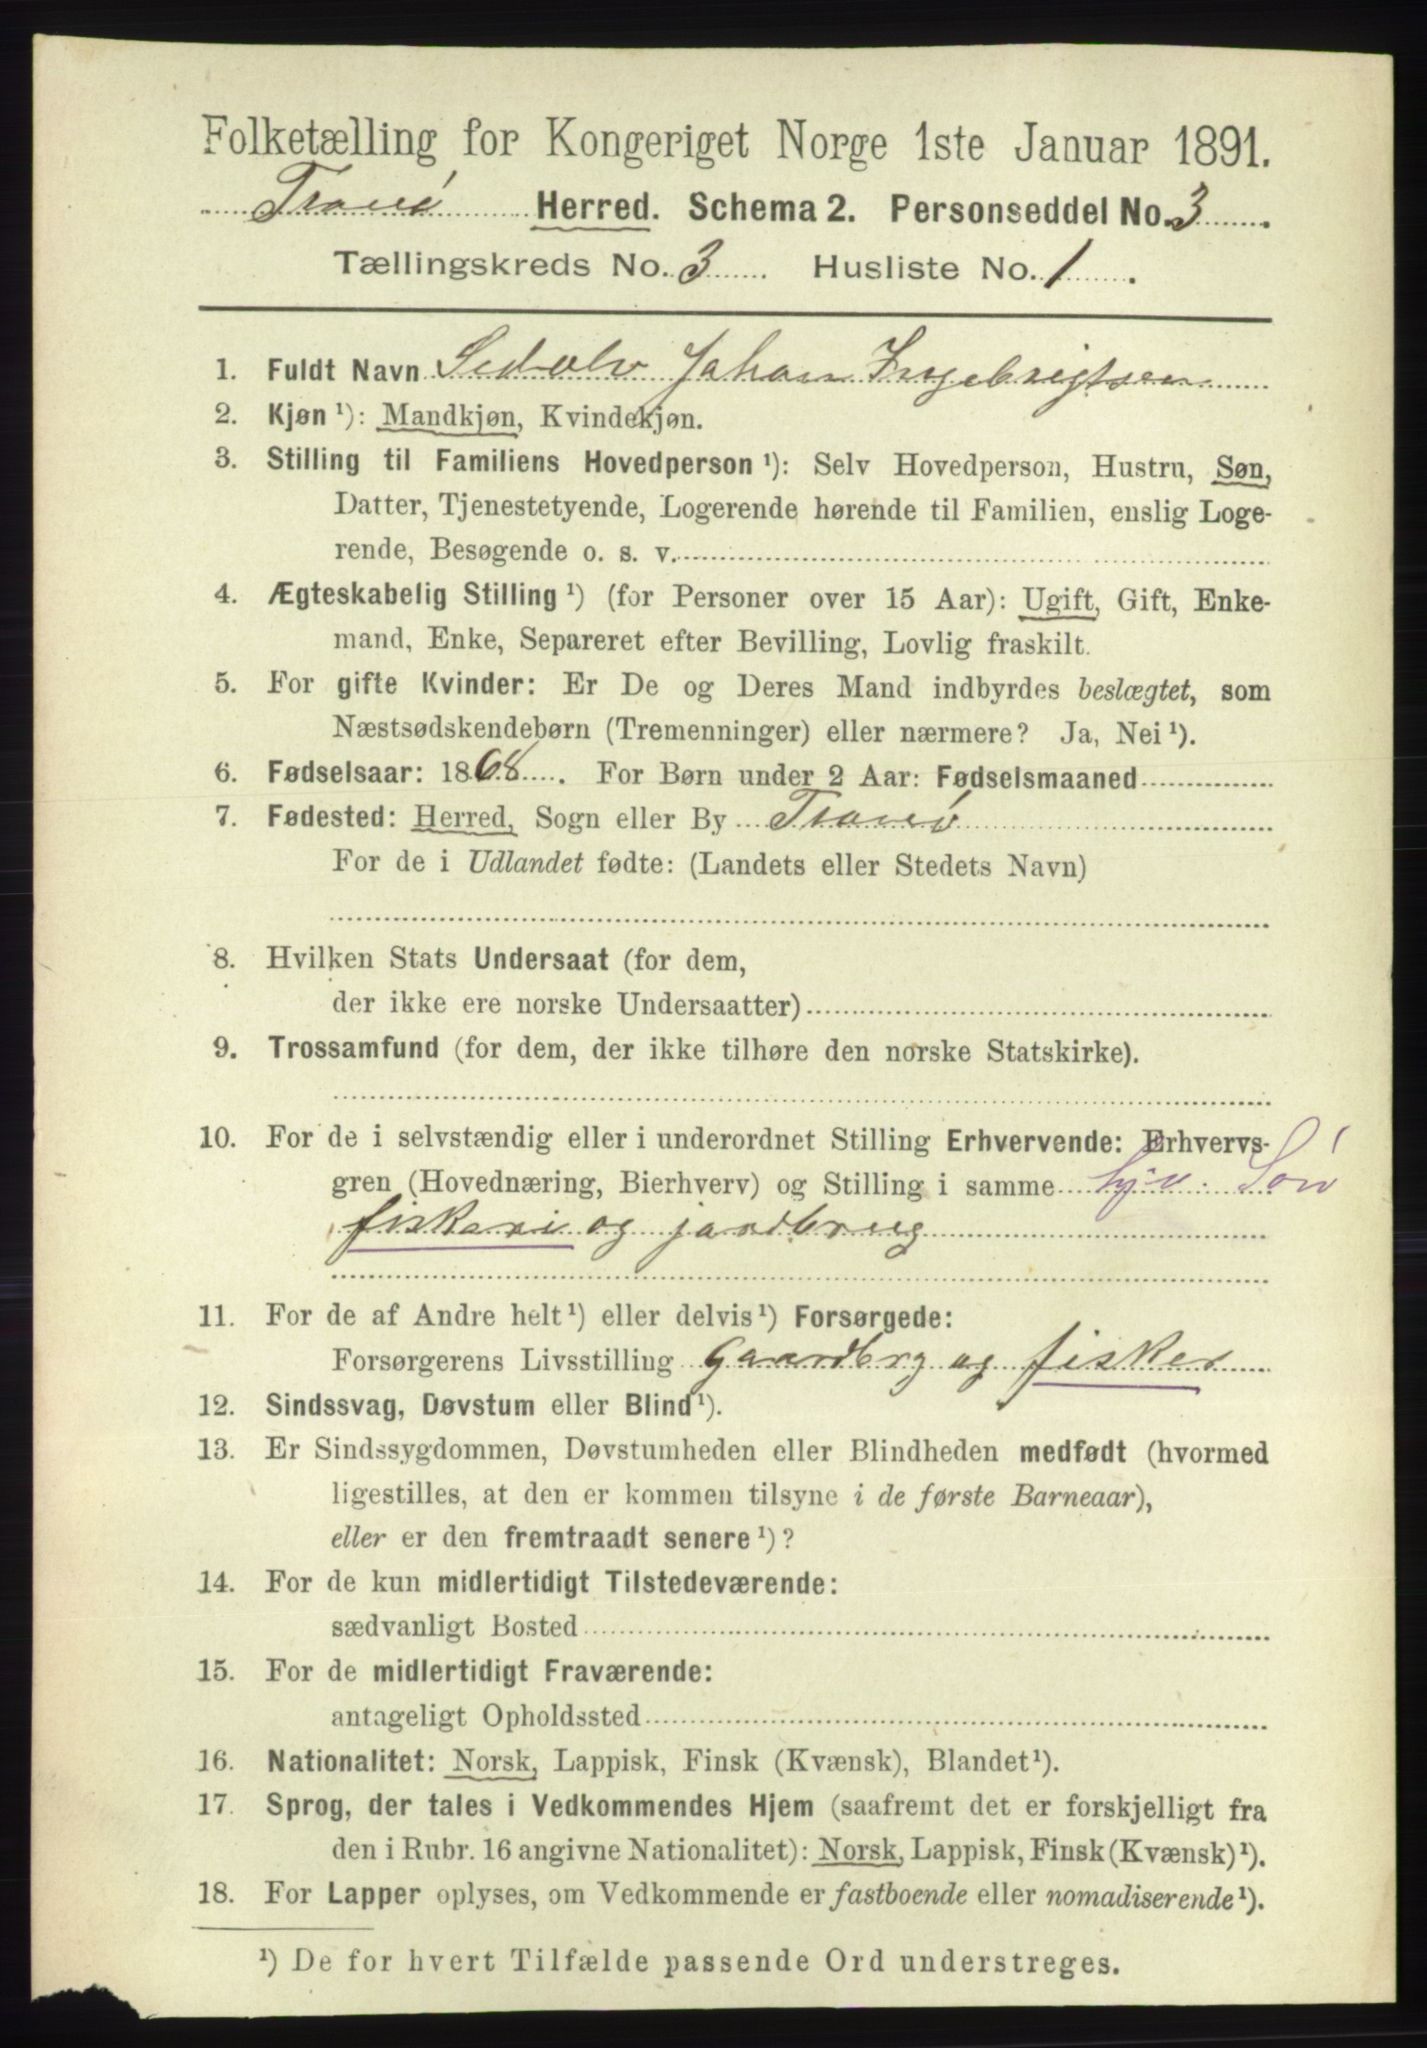 Folketælling for Kongeriget Norge 1ste Januar 1891.
Tranø Herred. Schema 2. Personseddel No. 3.
Tællingskreds No. 3 Husliste No. 1.
1. Fuldt Navn Sedolv Johan Ingebrigtsen
2. Kjøn ¹): Mandkjøn, Kvindekjøn.
3. Stilling til Familiens Hovedperson ¹): Selv Hovedperson, Hustru, Søn,
Datter, Tjenestetyende, Logerende hørende til Familien, enslig Loge-
rende, Besøgende o. s. v.
4. Ægteskabelig Stilling ¹) (for Personer over 15 Aar): Ugift, Gift, Enke-
mand, Enke, Separeret efter Bevilling, Lovlig fraskilt.
5. For gifte Kvinder: Er De og Deres Mand indbyrdes beslægtet, som
Næstsødskendebørn (Tremenninger) eller nærmere? Ja, Nei ¹).
6. Fødselsaar: 1868. For Børn under 2 Aar: Fødselsmaaned
7. Fødested: Herred, Sogn eller By Tranø
For de i Udlandet fødte: (Landets eller Stedets Navn)
8. Hvilken Stats Undersaat (for dem,
der ikke ere norske Undersaatter)
9. Trossamfund (for dem, der ikke tilhøre den norske Statskirke).
10. For de i selvstændig eller i underordnet Stilling Erhvervende: Erhvervs-
gren (Hovednæring, Bierhverv) og Stilling i samme Søn
fiskeri og jordbrug
11. For de af Andre helt ¹) eller delvis ¹) Forsørgede:
Forsørgerens Livsstilling Gaardbrg og fisker
12. Sindssvag, Døvstum eller Blind ¹).
13. Er Sindssygdommen, Døvstumheden eller Blindheden medfødt (hvormed
ligestilles, at den er kommen tilsyne i de første Barneaar),
eller er den fremtraadt senere ¹)?
14. For de kun midlertidigt Tilstedeværende:
sædvanligt Bosted
15. For de midlertidigt Fraværende:
antageligt Opholdssted
16. Nationalitet: Norsk, Lappisk, Finsk (Kvænsk), Blandet ¹).
17. Sprog, der tales i Vedkommendes Hjem (saafremt det er forskjelligt fra
den i Rubr. 16 angivne Nationalitet): Norsk, Lappisk, Finsk (Kvænsk) ¹).
18. For Lapper oplyses, om Vedkommende er fastboende eller nomadiserende ¹).
¹) De for hvert Tilfælde passende Ord understreges.